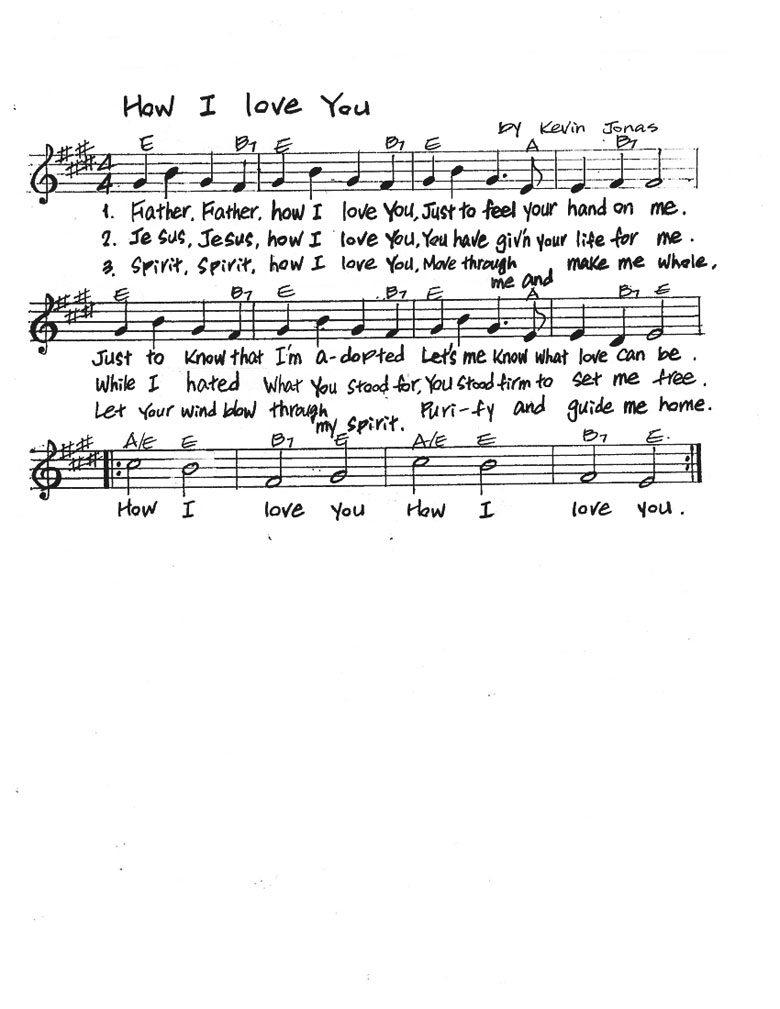 How I love You
by Kevin Jonas
E B7 E B7 E A B7
4
4
1. Father, Father, how I love You, Just to feel your hand on me.
2. Jesus, Jesus, how I love You, You have giv'n your life for me.
3. Spirit, Spirit, how I love You, Move through me and make me whole,
E B7 E B7 E A B7 E
Just to know that I'm a-dopted Let's me know what love can be.
While I hated what You stood for, You stood firm to set me free.
Let your wind blow through my spirit. Puri-fy and guide me home.
A/E E B7 E A/E E B7 E.
How I love you How I love you.